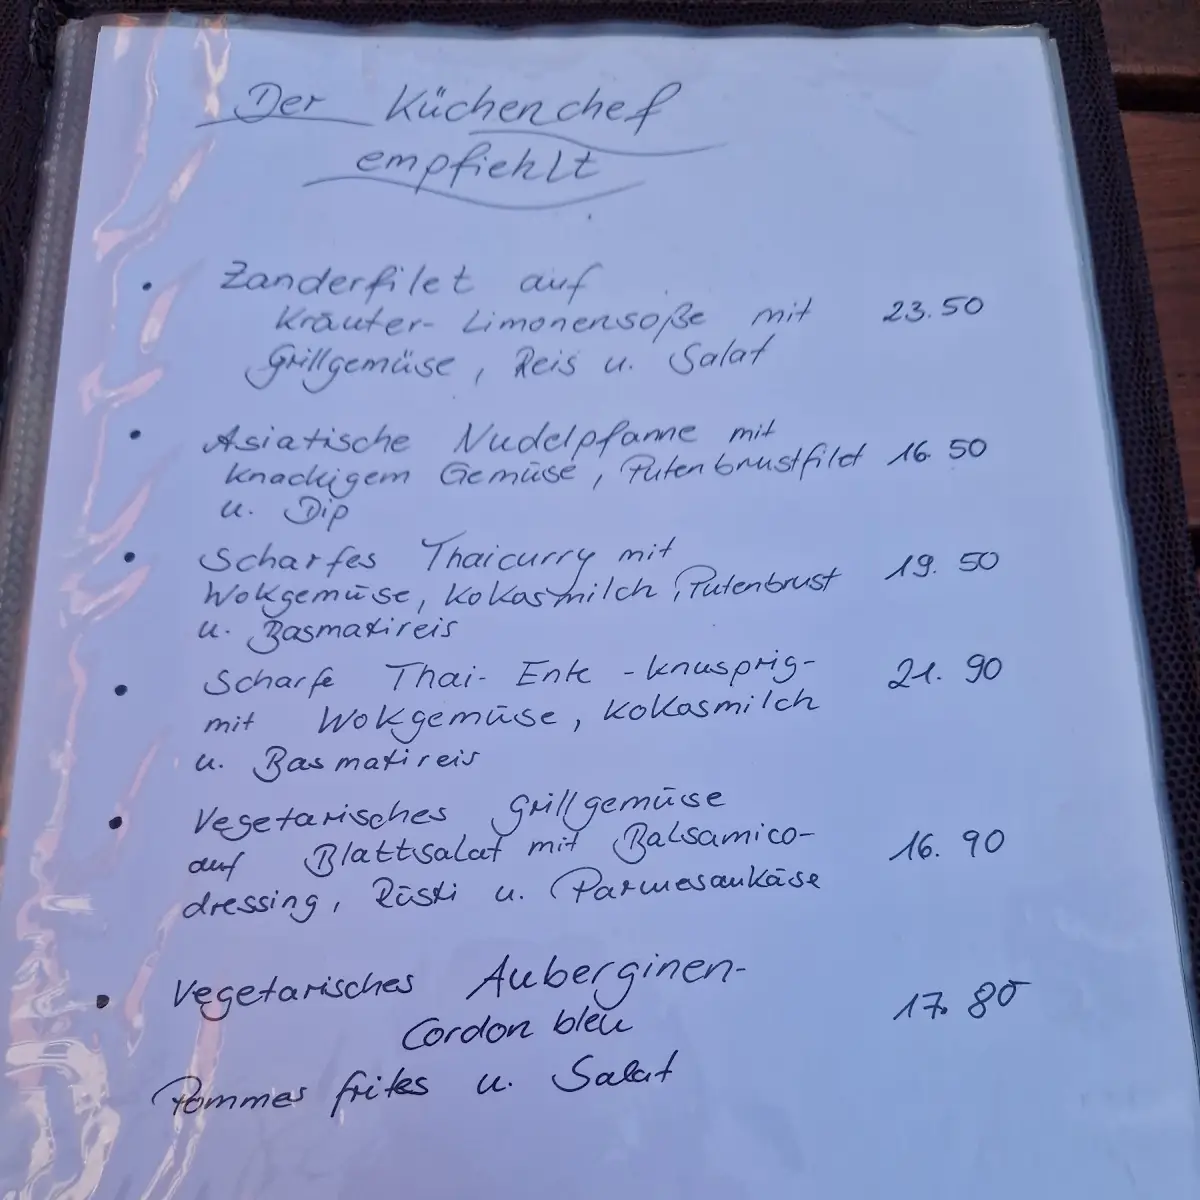 Der Küchenchef
empfiehlt
• Zanderfilet auf
Kräuter- Limonensoße mit 23.50
Grillgemüse, Reis u. Salat
• Asiatische Nudelpfanne mit
knackigem Gemüse, Putenbrustfilet 16.50
u. Dip
• Scharfes Thaicurry mit
Wokgemüse, Kokosmilch, Putenbrust 19.50
u. Basmatireis
• Scharfe Thai- Ente -knusprig- 21.90
mit Wokgemüse, Kokosmilch
u. Basmatireis
• Vegetarisches Grillgemüse
auf Blattsalat mit Balsamico- 16.90
dressing, Rösti u. Parmesankäse
• Vegetarisches Auberginen-
Cordon bleu 17.80
Pommes frites u. Salat